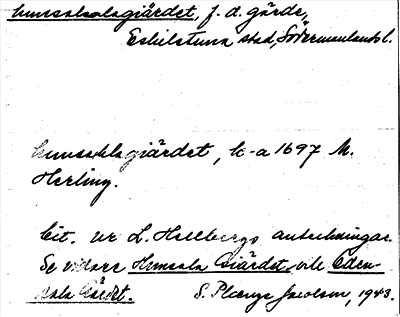 Humsalagiärdet, f. d. gärde,
Eskilstuna stad, Södermanlands l.
Humsalagiärdet, k-a 1697 M.
Herling.
Cit. ur L. Hellbergs anteckningar.
Se vidare Humsala Giärdet, vill Eden-
sala Gärdet. S. Plænge Jacobson, 1943.